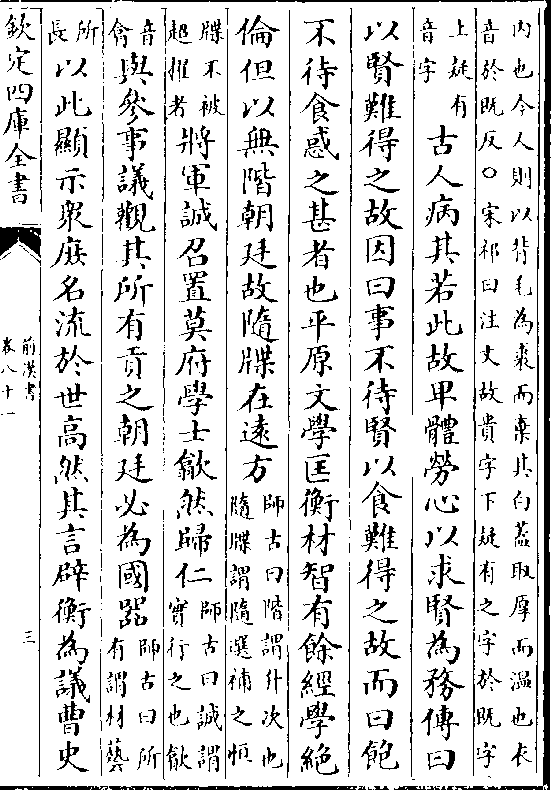 内也今人則以背毛為裘而棄其白葢取厚而温也衣
音於既反○宋祁曰注文故貴字下疑有之字於既字
上疑有
音字
古人病其若此故卑體勞心以求賢為務傳曰
以賢難得之故因曰事不待賢以食難得之故而曰飽
不待食惑之甚者也平原文學匡衡材智有餘經學絶
倫但以無階朝廷故隨牒在逺方
師古曰階謂升次也
隨牒謂隨選補之恒
牒不被
超擢者
將軍誠召置莫府學士歙然歸仁
師古曰誠謂
實行之也歙
音
翕
與參事議觀其所有貢之朝廷必為國器
師古曰所
有謂材藝
所
長
以此顯示衆庶名流於世高然其言辟衡為議曹史
欽定四庫全書
前漢書
卷八十一
三